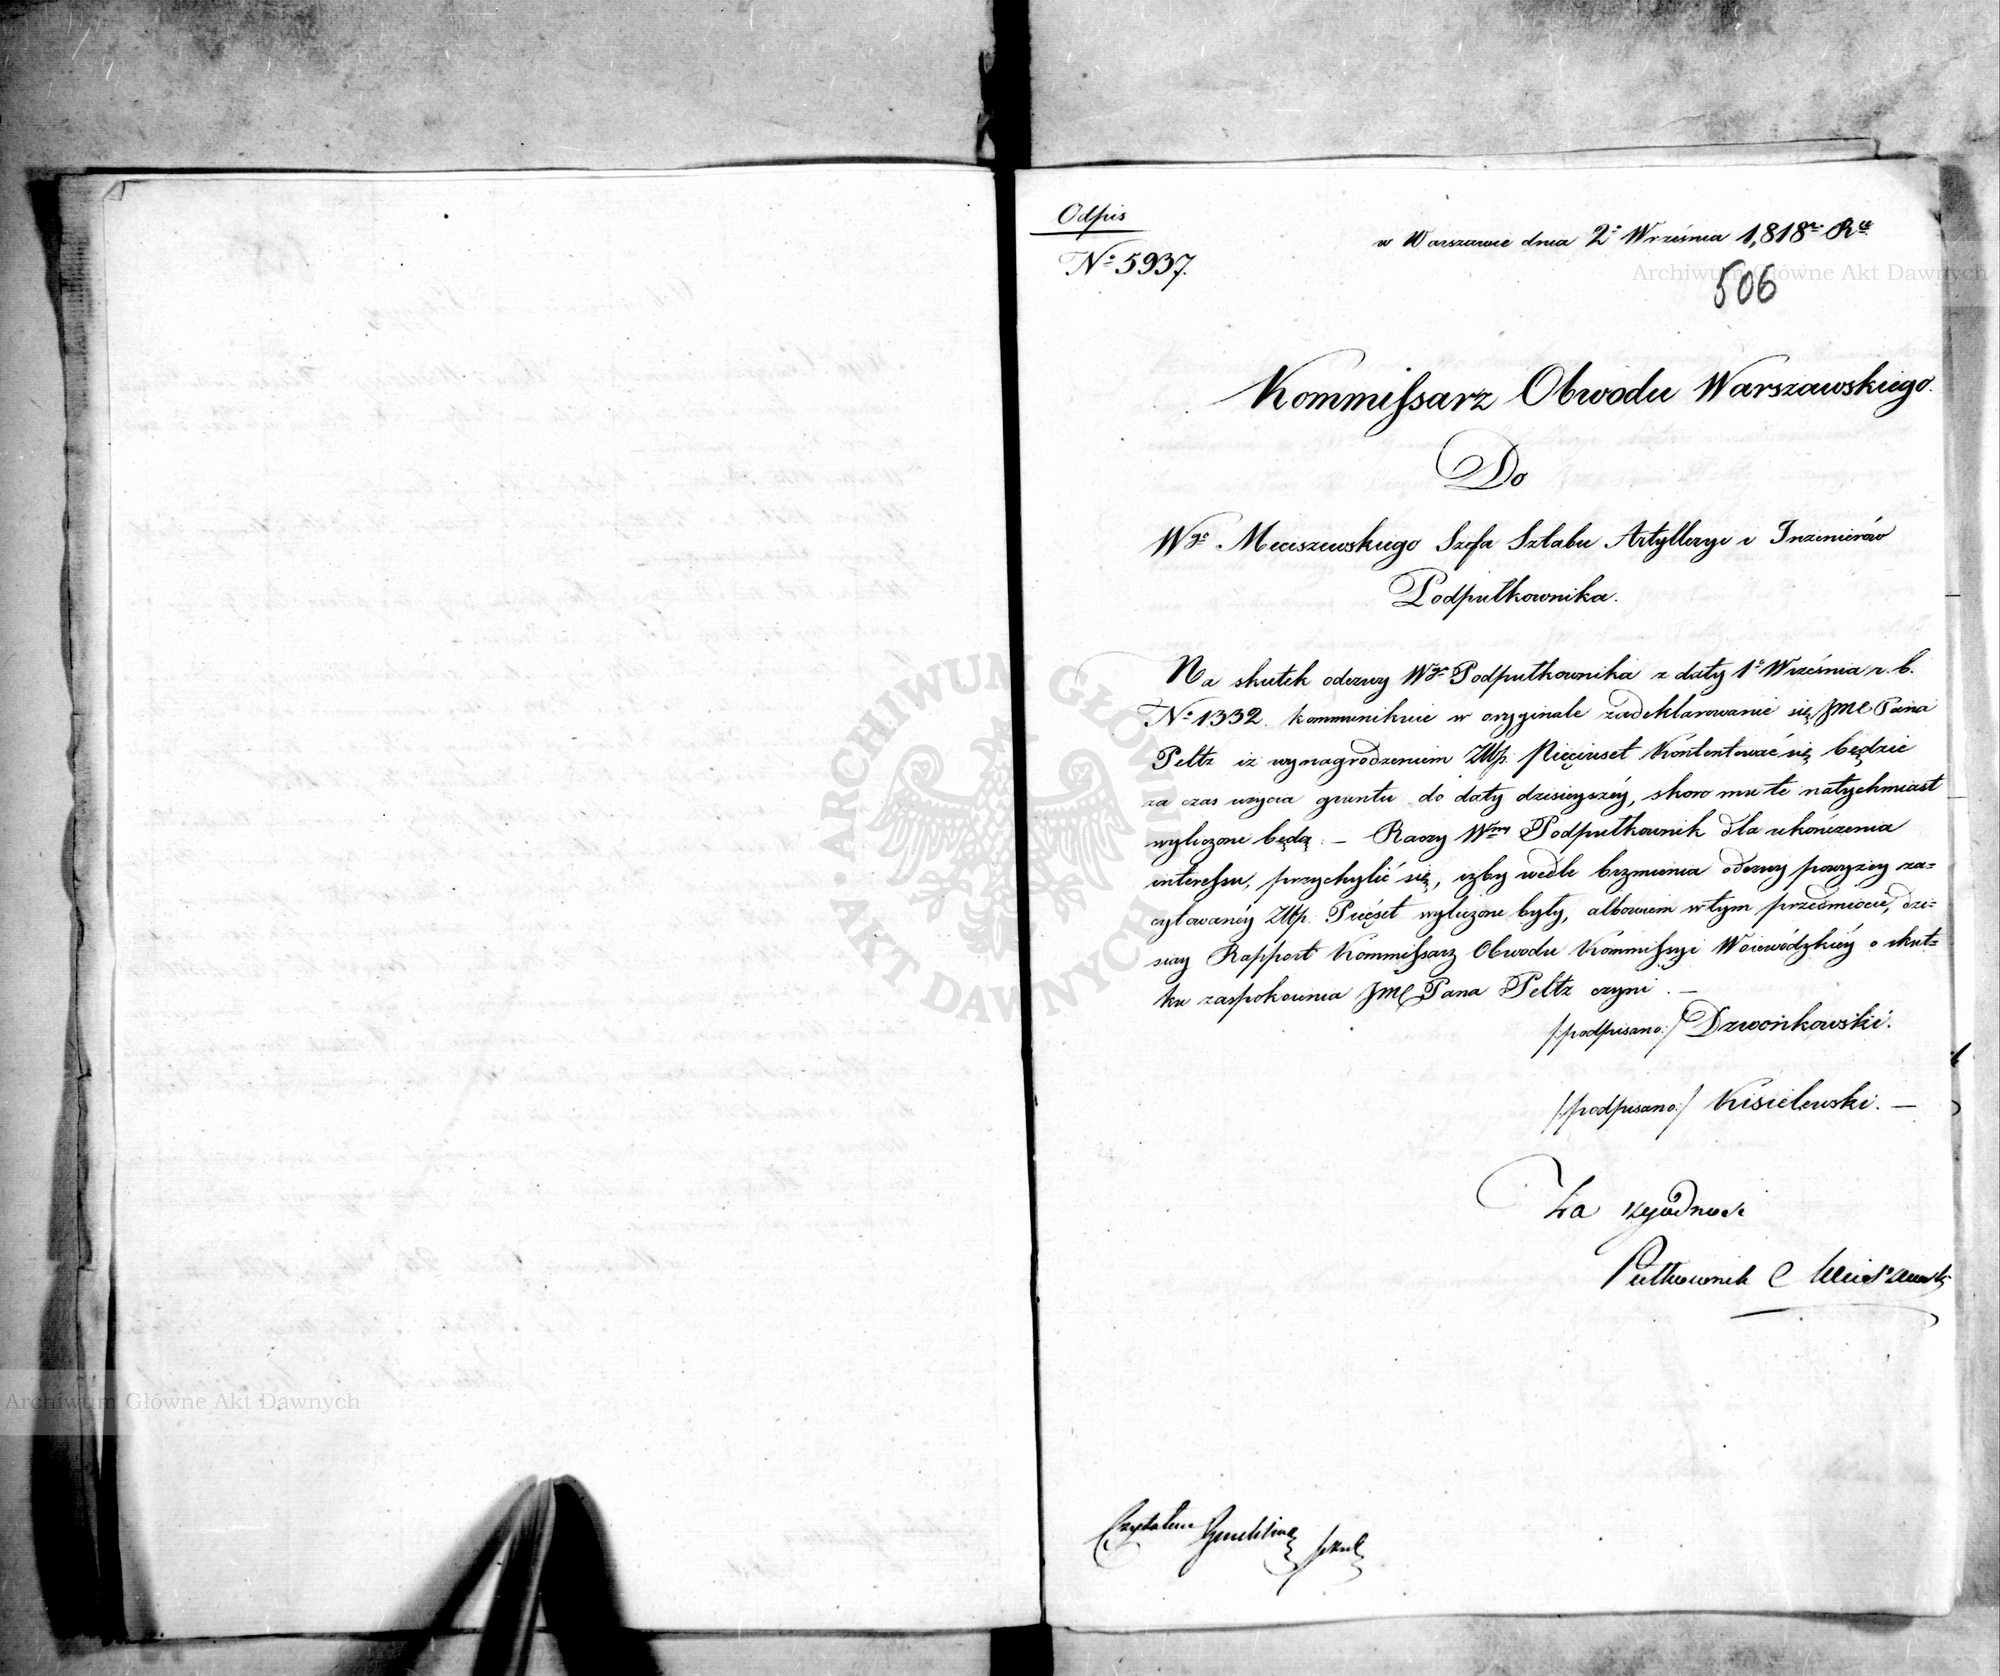 Odpis
w Warszawie dnia 2º Września 1,818º Rº
Nº 5937.
506
Kommissarz Obwodu Warszawskiego.
Do
Wgo Meciszewskiego Szefa Sztabu Artylleryi i Inzenierów
Podpułkownika.
Na skutek odezwy Wgo Podpułkownika z daty 1º Września r. b.
Nº 1332. kommunikuie w oryginale zadeklarowanie się JMC Pana
Peltz iz wynagrodzeniem Złłp. Pięciuset kontentować się będzie
za czas uzycia gruntu do daty dzisieyszéy, skoro mu te natychmiast
wyliczone będą. — Raczy Wny Podpułkownik dla ukończenia
interessu, przychylić się, izby wedle brzmienia odezwy powyzey za=
cytowanéy Złłp. Pięćset wyliczone były, albowiem w tym przedmiocie, dzi=
siay Rapport Kommissarz Obwodu Kommissyi Woiewódzkiéy o skut=
ku zaspokoienia JMC Pana Peltz czyni. —
/:podpisano:/ Dzwonkowski.
/:podpisano:/ Kisielewski. —
Za zgodność
Pułkownik Meciszewski
Czytałem
ARCHIWUM GŁÓWNE AKT DAWNYCH
Archiwum Główne Akt Dawnych
Archiwum Główne Akt Dawnych